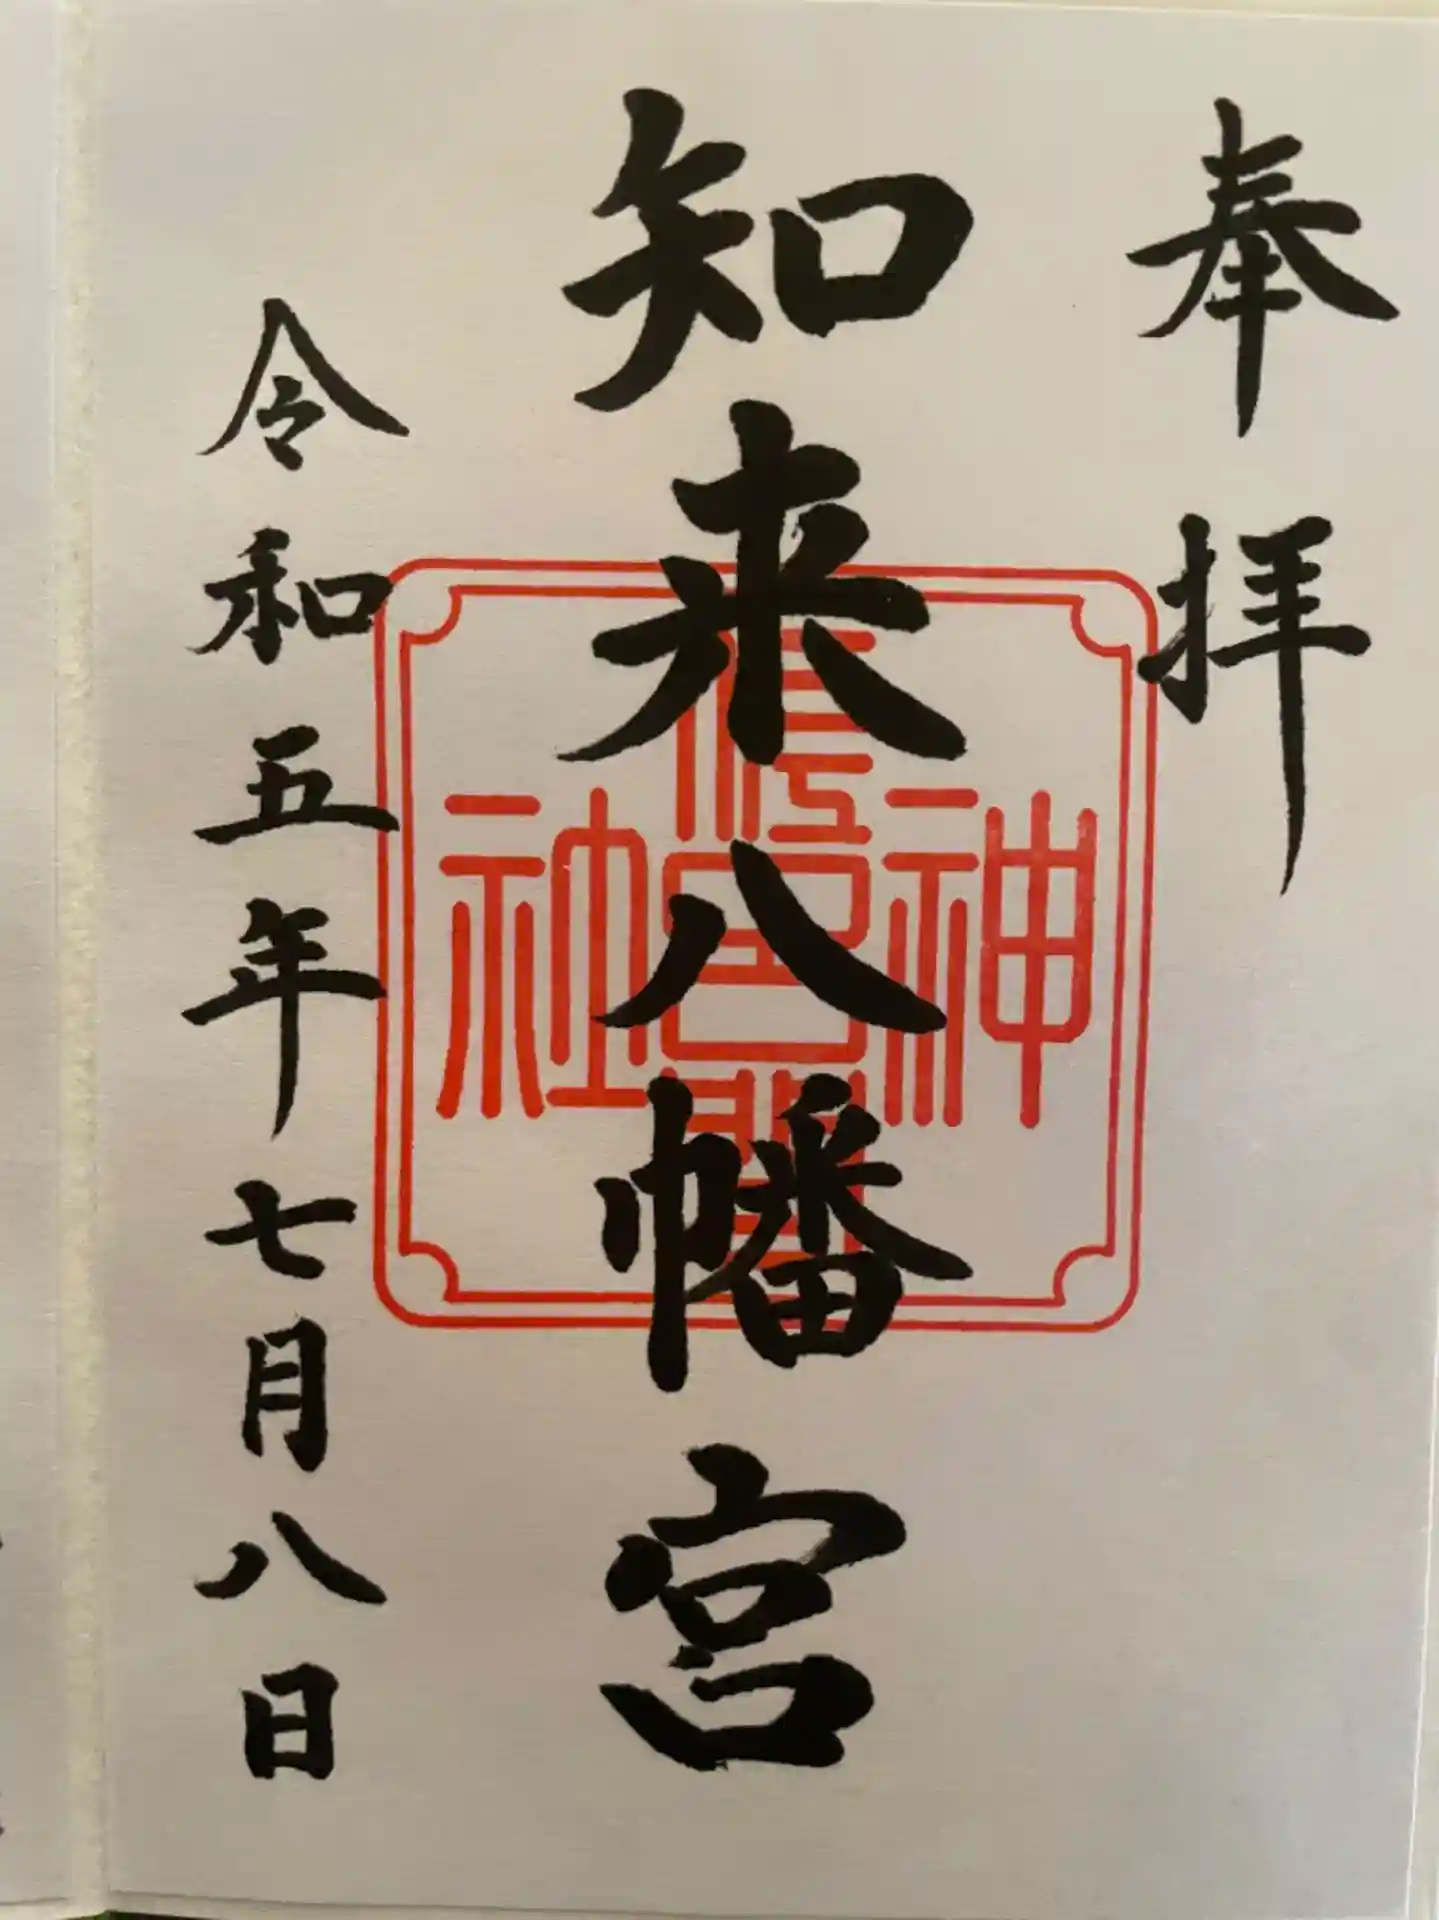 奉拝
知来八幡宮
令和五年七月八日
神社